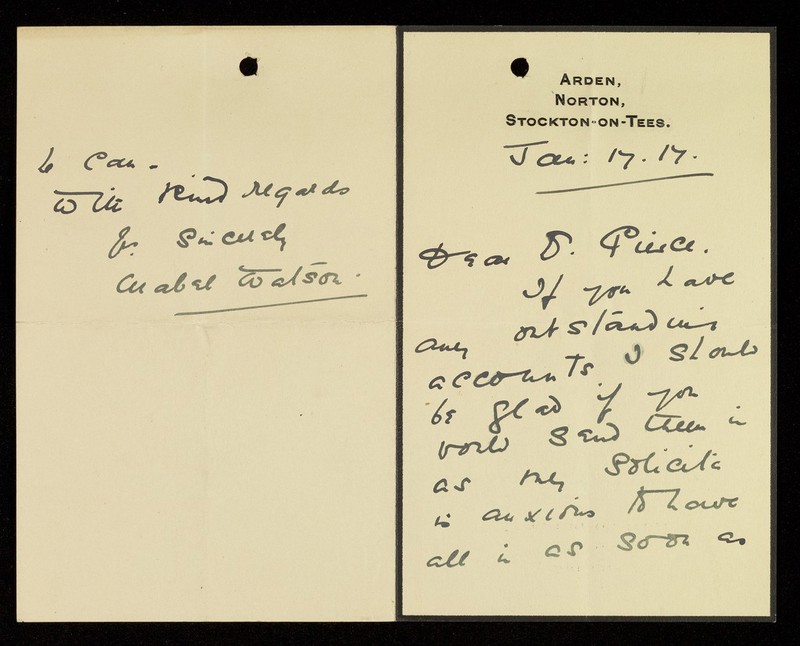 ARDEN,
NORTON,
STOCKTON-ON-TEES.
Jan: 17. 17.
Dear D. Pierce.
If you have
any outstanding
accounts I should
be glad if you
would send them in
as my solicitr
is anxious to have
all in as soon as
he can.
With kind regards
Yrs Sincerely
Mabel Watson.